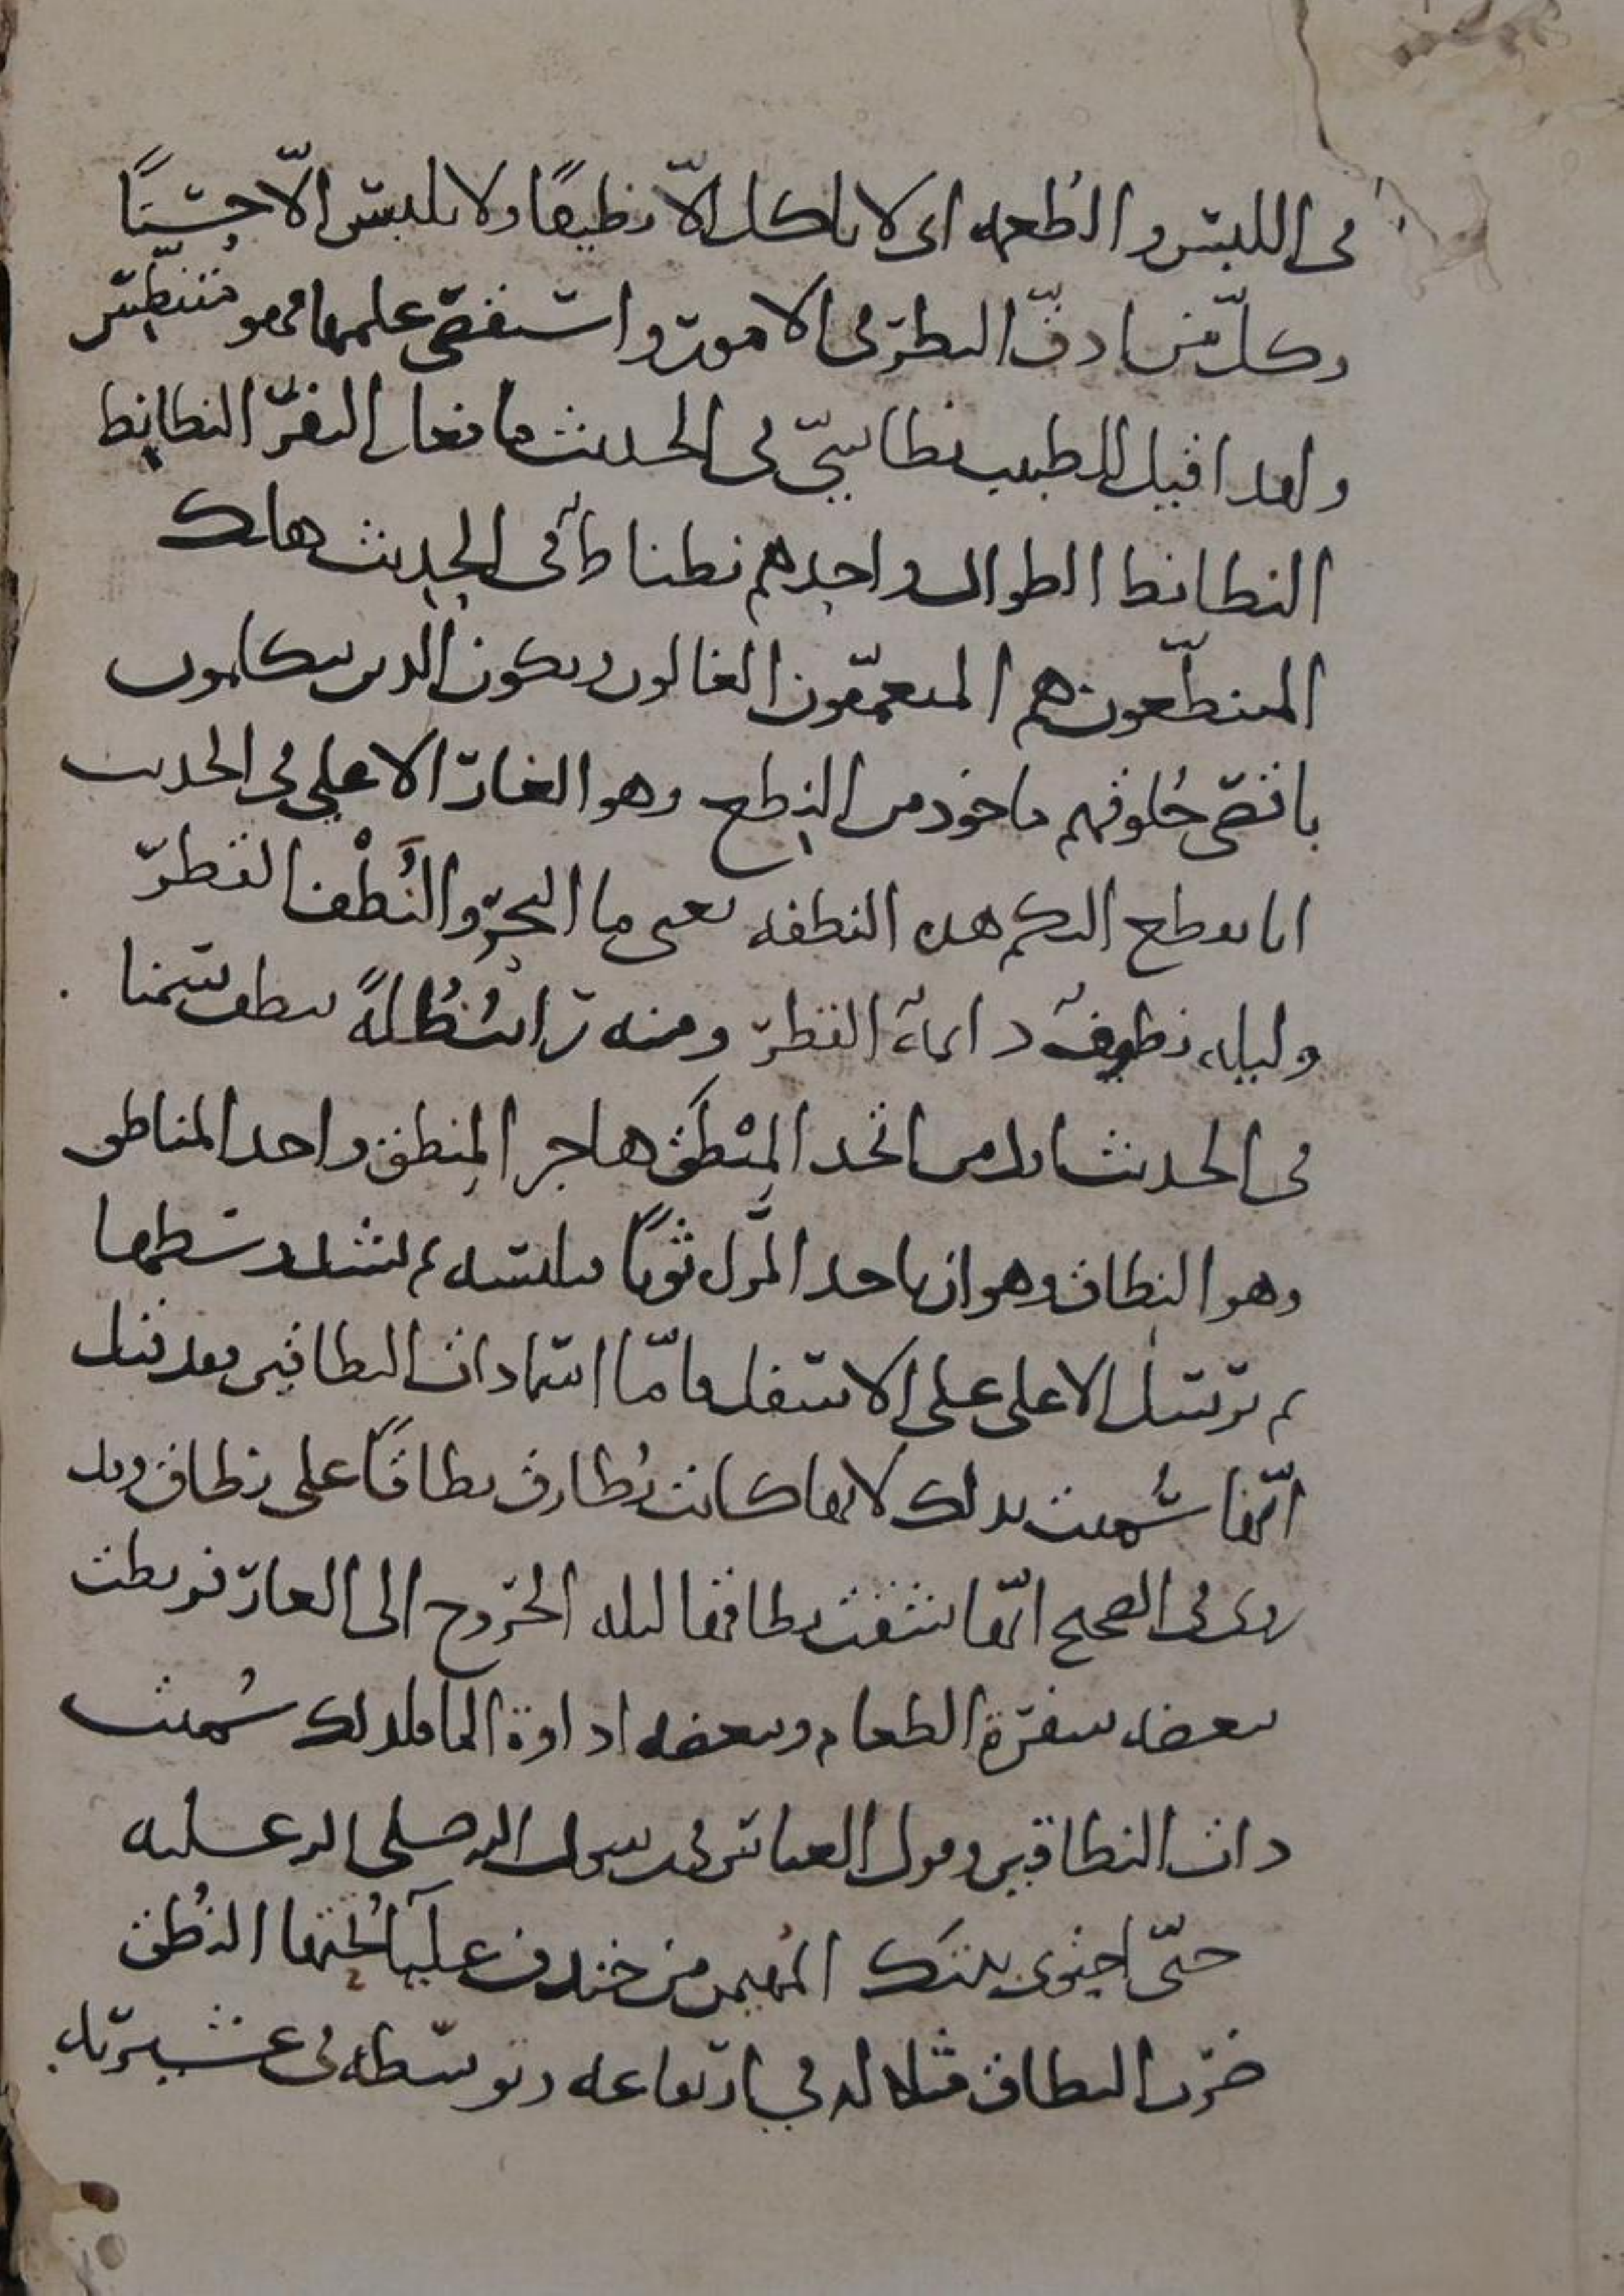 في اللبس والطعمه اى لا ياكل الّا نظيفًا ولا يلبس الّا حسنًا
وكلّ من ادقّ النظر فى الامور واستقصى علمها فهو متنطّس
ولهذا قيل للطبيب نطاسىّ فى الحديث ما فعل النفر النطانط
النطانط الطوال واحدهم نطناط فى الحديث هلك
المتنطّعون هم المتعمّقون الغالون ويكون الذين يتكلمون
باقصى حلوقهم ماخوذ من النطع وهو الغار الاعلى فى الحديث
انا نقطع اليكم هذه النطفه يعنى ما البحر والنَّطْف القطر
وليله نطوف دايمة القطر ومنه رايت ظُلةً تنطف سمنا
فى الحديث اول من اتخذ المِنْطَق هاجر المنطق واحد المناطق
وهو النطاق وهو ان تاخذ المراة ثوبًا فتلبسه ثم تشد وسطها
ثم ترسل الاعلى على الاسفل فامّا اسما ذات النطاقين فقد قيل
انّها سُميت بذلك لانها كانت تُطارق نطاقًا على نطاق وقد
روى فى الصحيح انّها شقت نطاقها ليله الخروج الى الغار فربطت
ببعضه سفرة الطعام وببعضه اداوة الما فلذلك سُميت
ذات النطاقين وقول العباس فى رسول الله صلى الله عليه
حتّى احتوى بيتك المهيمن من خندف عليآ تحتها النُطق
ضرب النطاق مثلا له في ارتفاعه وتوسّطه فى عشيرته